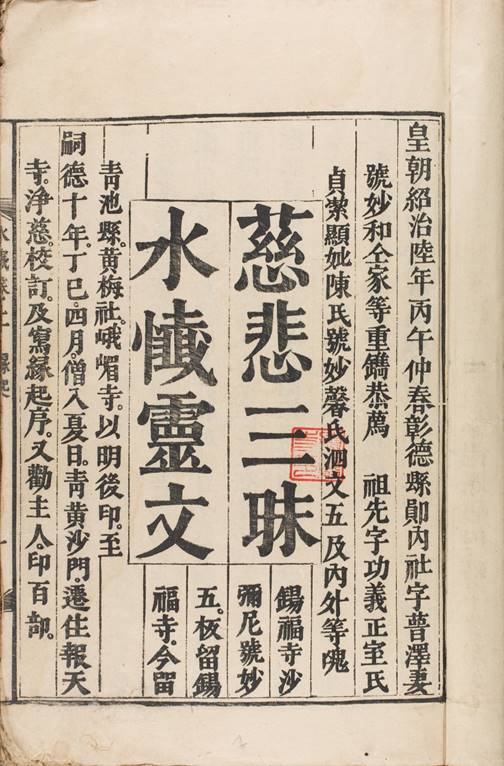 皇朝紹治陸年丙午仲春彰德縣鄖內社字曹澤妻
號妙和仝家等重鐫恭薦 祖先字功義正室氏
貞潔顯妣陳氏號妙馨氏泗文五及內外等魂
慈悲三昧
水懺靈文
錫福寺沙
彌尼號妙
五。板留錫
福寺。今留
青池縣。黃梅社。峨嵋寺。以明後印。至
嗣德十年。丁巳。四月。僧入夏日。青黃沙門。遷住報天
寺。淨慈。校訂。及寫緣起序。又勸主人。印百部。